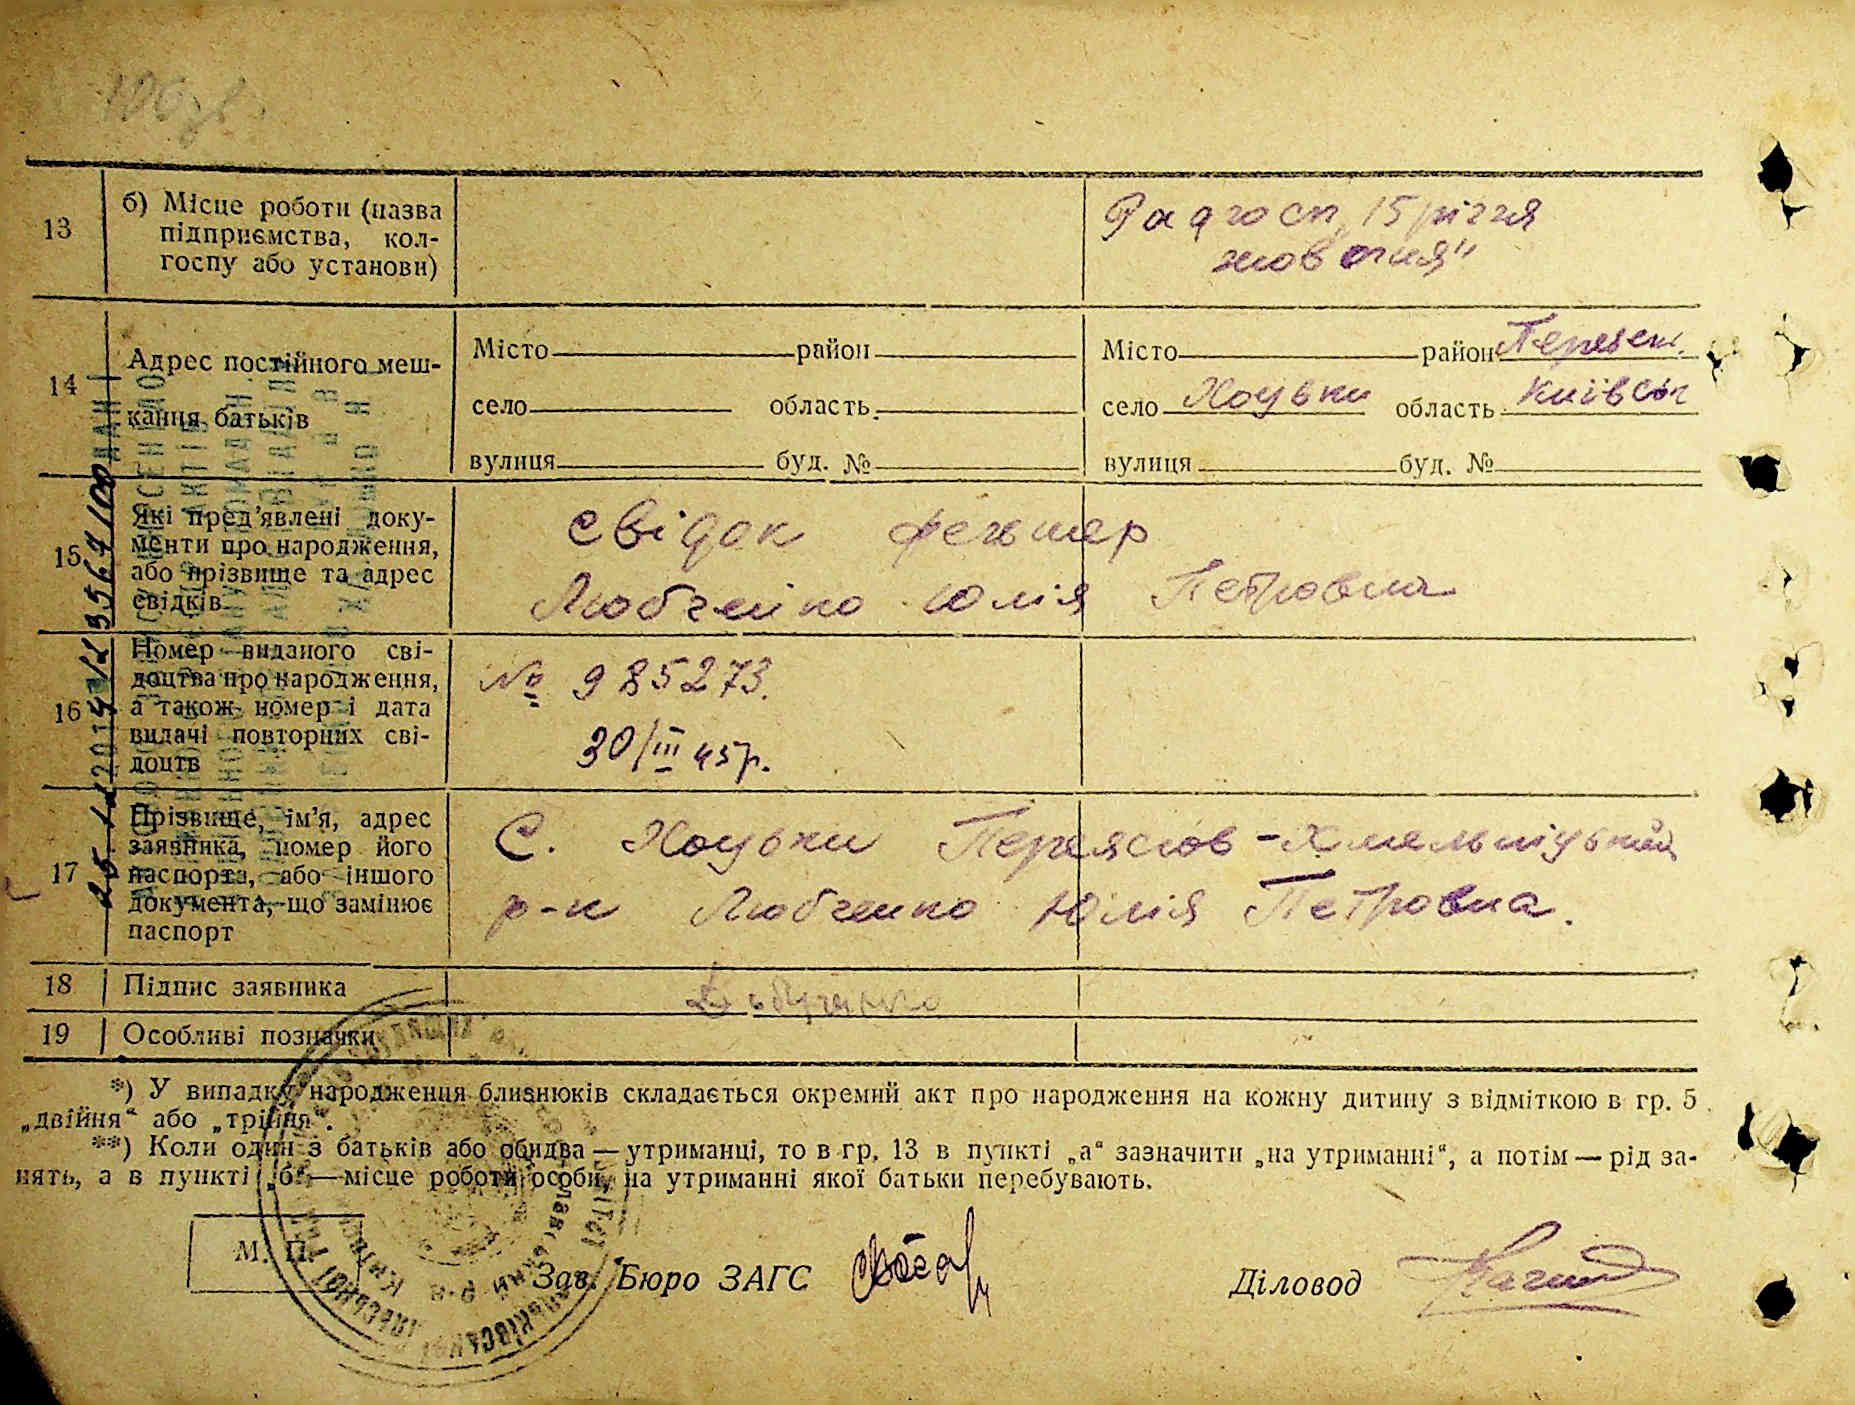 13
б) Місце роботи (назва
підприємства, кол-
госпу або установи)
Радгосп „15 річчя
жовтня"
14
Адрес постійного меш-
кання батьків
Місто район
село область
вулиця буд. №
Місто район
село Хоцьки область Київськ
вулиця буд. №
15
Які пред'явлені доку-
менти про народження,
або прізвище та адрес
свідків
свідок фельшер
Любченко Юлія Петровна
16
Номер виданого сві-
доцтва про народження,
а також номер і дата
видачі повторних сві-
доцтв
№ 985273.
30/III 45р.
17
Прізвище, ім'я, адрес
заявника, номер його
паспорта, або іншого
документа, що замінює
паспорт
С. Хоцьки Переяслов-Хмельніцький
р-н Любченко Юлія Петровна.
18
Підпис заявника
19
Особливі позначки
*) У випадку народження близнюків складається окремий акт про народження на кожну дитину з відміткою в гр. 5
„двійня“ або „трійня“.
**) Коли один з батьків або обидва—утриманці, то в гр. 13 в пункті „а“ зазначити „на утриманні“, а потім—рід за-
нять, а в пункті „б“—місце роботи особи, на утриманні якої батьки перебувають.
М. П.
Зав. Бюро ЗАГС
Діловод